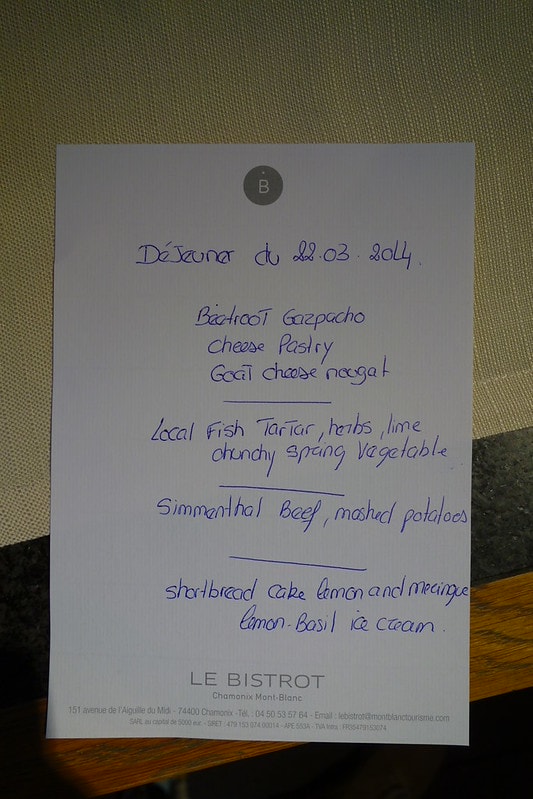 B
Déjeuner du 22.03.2014.
Beetroot Gazpacho
cheese Pastry
Goat cheese nougat
Local Fish Tartar, herbs, lime
chunchy spring Vegetable
Simmenthal Beef, mashed potatoes
shortbread cake lemon and meringue
lemon-Basil ice cream.
LE BISTROT
Chamonix Mont-Blanc
151 avenue de l'Aiguille du Midi - 74400 Chamonix - Tél. : 04 50 53 57 64 - Email : lebistrot@montblanctourisme.com
SARL au capital de 5000 eur. - SIRET : 479 153 074 00014 - APE 553A - TVA Intra. :